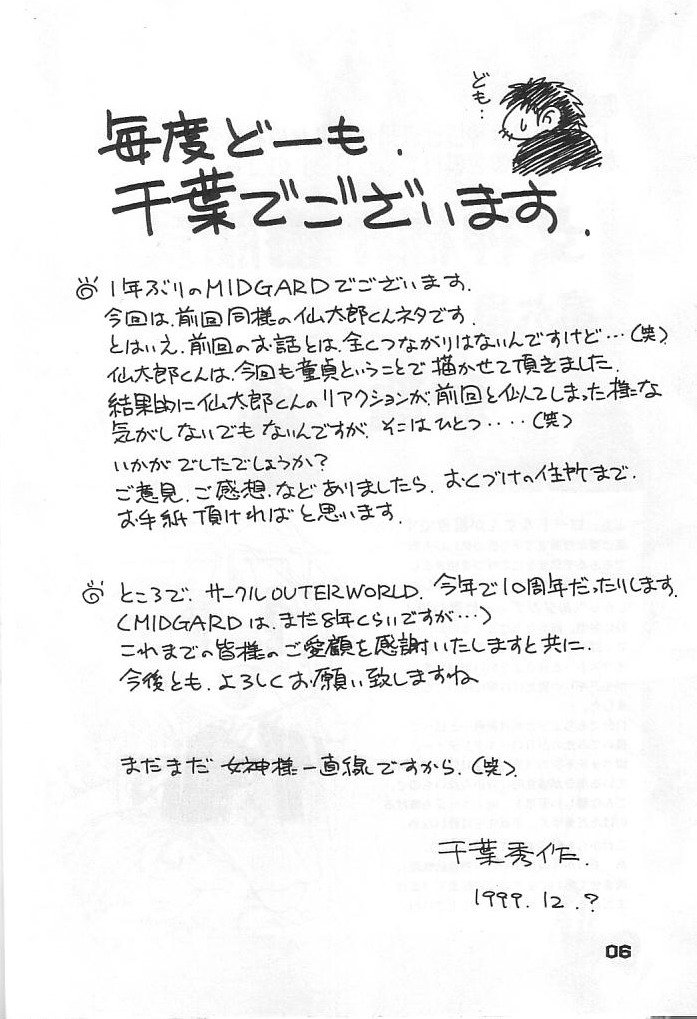 ども…
毎度どーも．
千葉でございます．
1年ぶりのMIDGARDでございます．
今回は、前回同様の仙太郎くんネタです．
とはいえ、前回のお話とは、全くつながりはないんですけど…（笑）
仙太郎くんは、今回も童貞ということで描かせて頂きました．
結果的に仙太郎くんのリアクションが、前回と似てしまった様な
気がしないでもないんですが、そこはひとつ‥‥（笑）
いかがでしたでしょうか？
ご意見、ご感想、などありましたら、おくづけの住所まで、
お手紙頂ければと思います．
ところで、サークルOUTERWORLD、今年で10周年だったりします．
（MIDGARDは、まだ8年くらいですが…）
これまでの皆様のご愛顧を感謝いたしますと共に、
今後とも、よろしくお願い致しますね
まだまだ女神様一直線ですから、（笑）．
千葉秀作．
1999．12．？
06